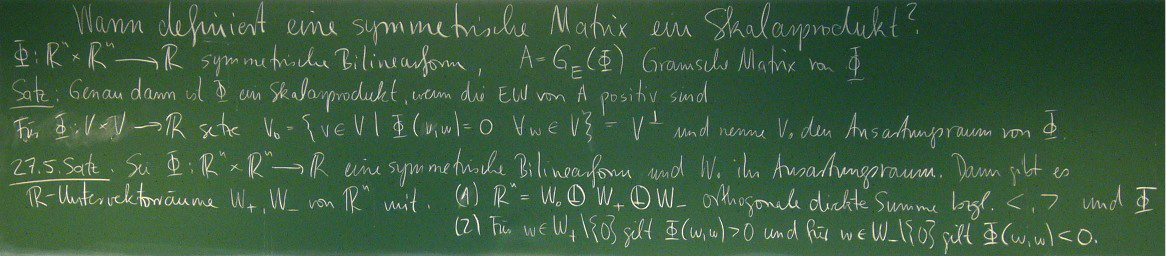 Wann definiert eine symmetrische Matrix ein Skalarprodukt?
Φ: ℝⁿ × ℝⁿ → ℝ symmetrische Bilinearform, A = G_E(Φ) Gramsche Matrix von Φ
Satz: Genau dann ist Φ ein Skalarprodukt, wenn die EW von A positiv sind
Für Φ: V×V → ℝ setze V₀ = {v ∈ V | Φ(v,w) = 0 ∀w ∈ V} = V^⊥ und nenne V₀ den Ausartungsraum von Φ.
27.5. Satz. Sei Φ: ℝⁿ × ℝⁿ → ℝ eine symmetrische Bilinearform und W₀ ihr Ausartungsraum. Dann gibt es
ℝ-Untervektorräume W₊, W₋ von ℝⁿ mit. (1) ℝⁿ = W₀ ⦶ W₊ ⦶ W₋ orthogonale direkte Summe bzgl. <,> und Φ
(2) Für w ∈ W₊\{0} gilt Φ(w,w) > 0 und für w ∈ W₋\{0} gilt Φ(w,w) < 0.